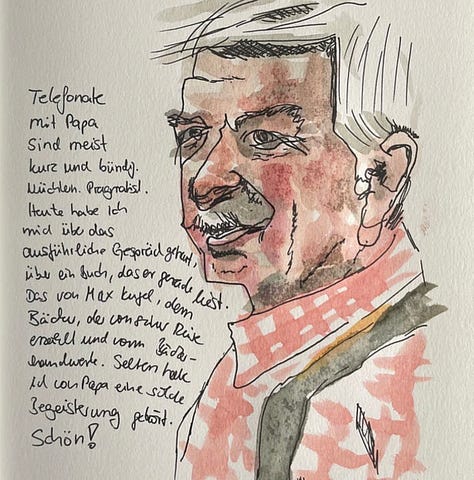 Telefonate
mit Papa
sind meist
kurz und bündig.
Nüchtern. Pragmatisch.
Heute habe ich
mich über das
ausführliche Gespräch gefreut,
über ein Buch, das er gerade liest.
Das von Max Kugel, dem
Bäcker, der von seiner Reise
erzählt und vom Bäcker-
handwerk. Selten habe
ich von Papa eine solche
Begeisterung gehört.
Schön!